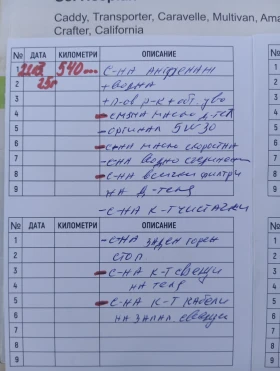 Caddy, Transporter, Caravelle, Multivan,
Crafter, California
№ ДАТА КИЛОМЕТРИ ОПИСАНИЕ
1 540 С-НА АНГРЕНАЖ
2 25г + ВОДНА
3
4 СМЯНА МАСЛО Д-ТЕЛ
5 -ОРГИНАЛ 5W30
6 С-НА МАСЛО СКОРОСТНА
7 -С-НА
8 С-НА ФИЛТРИ
9 НА Д-ТЕЛЯ
-С-НА К-Т ЧИСТАЧКИ
№ ДАТА КИЛОМЕТРИ ОПИСАНИЕ
1 -С-НА ЗАДЕН ГОРЕН
2 СТОП
3 -С-НА К-Т СВЕЩИ
4 НА ТЕЛЯ
5 -С-НА К-Т КАБЕЛИ
6 НА ЗАПАЛ СВЕЩИ
7
8
9